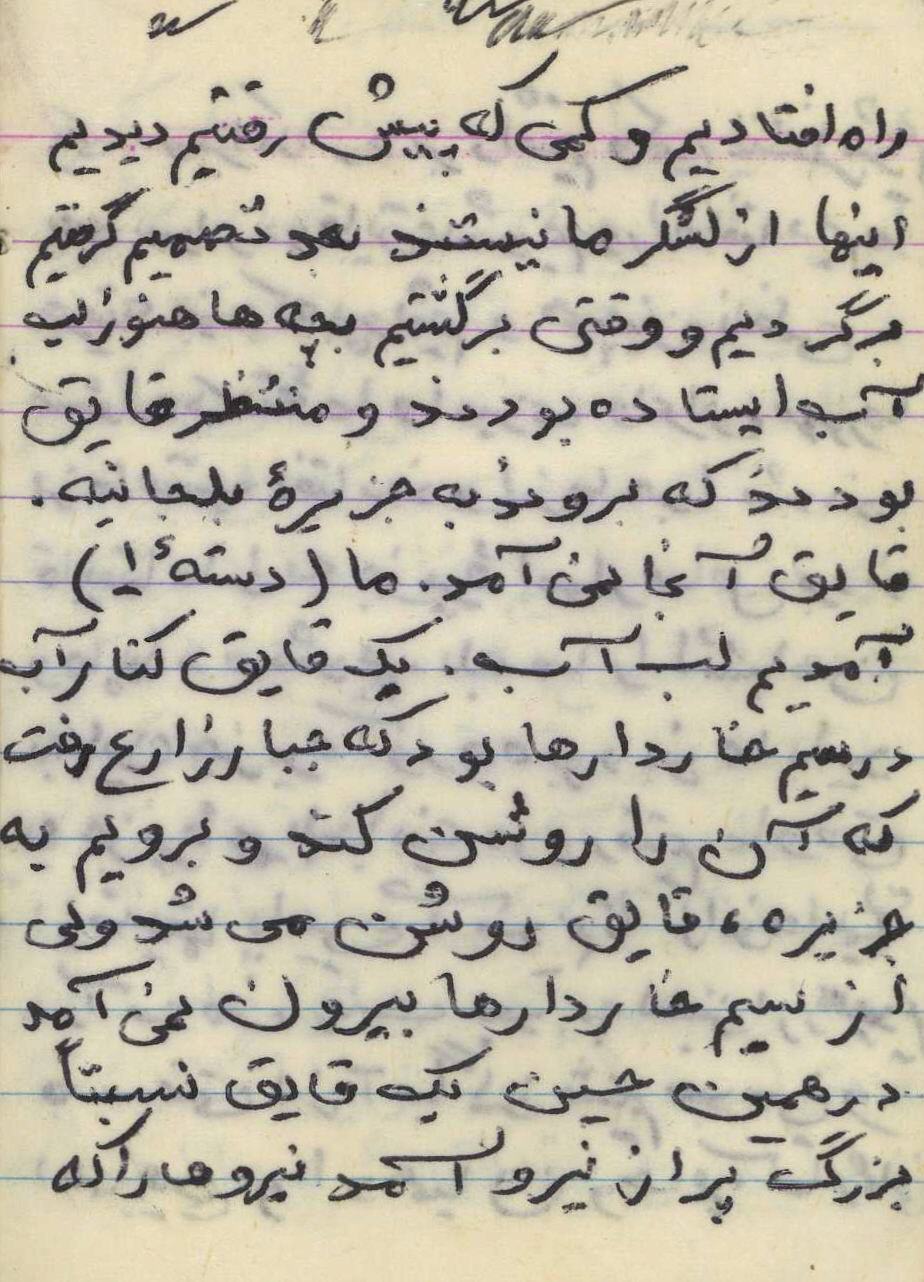 راه افتادیم و کمی که پیش رفتیم دیدیم
اینها از لشگر ما نیستند بعد تصمیم گرفتیم
برگردیم و وقتی برگشتیم بچه ها هنوز لب
آب ایستاده بودند و منتظر قایق
بودند که بروند به جزیرهٔ بلجانیه.
قایق آنجا نمی آمد. ما (دستهٔ ۱)
آمدیم لب آب. یک قایق کنار آب
در سیم خاردارها بود که جبار زارع رفت
که آن را روشن کند و برویم به
جزیره، قایق روشن می شد ولی
از سیم خاردارها بیرون نمی آمد
در همین حین یک قایق نسبتاً
بزرگ پر از نیرو آمد نیروها را که